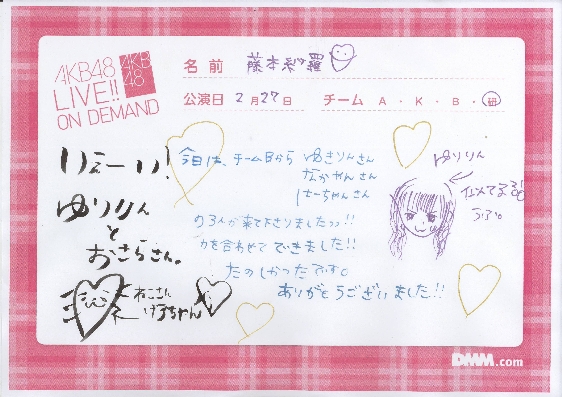 AKB48
LIVE!!
ON DEMAND
AKB
48
名前 藤本紗羅
公演日 2月27日 チーム A・K・B・研
いぇーい!
ゆりりん
と
おさらさん。
ねこさん
げろちゃん
今日は、チームBから ゆきりんさん
なかやんさん
しーちゃんさん
の3人が来て下さりましたっっ!!
力を合わせてできました!!
たのしかったです。
ありがとうございました!!
ゆりりん
似てる
DMM.com